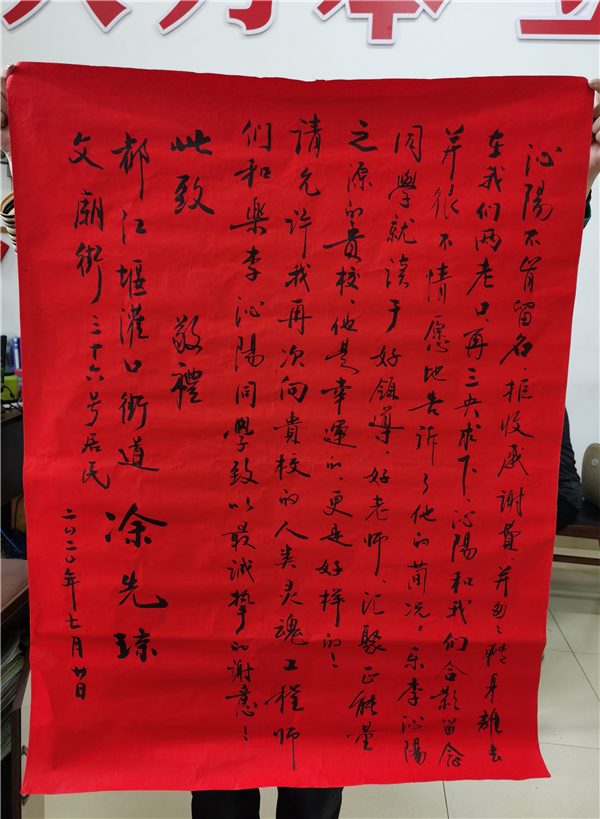 沁陽不肯留名、拒收感謝費、并匆々轉身離去
在我们两老口再三央求下、沁陽和我们合影留念
并很不情愿地告訴了他的简况。乐李沁陽
同學就读于好領導、好老师、汇聚正能量
之源的貴校、他是幸運的、更是好样的!
請允许我再次向貴校的人类灵魂工程师
们和樂李沁陽同學致以最诚挚的谢意!
此致 敬禮
都江堰灌口街道 涂先琼
文廟街三十六号居民
二〇二〇年七月廿日